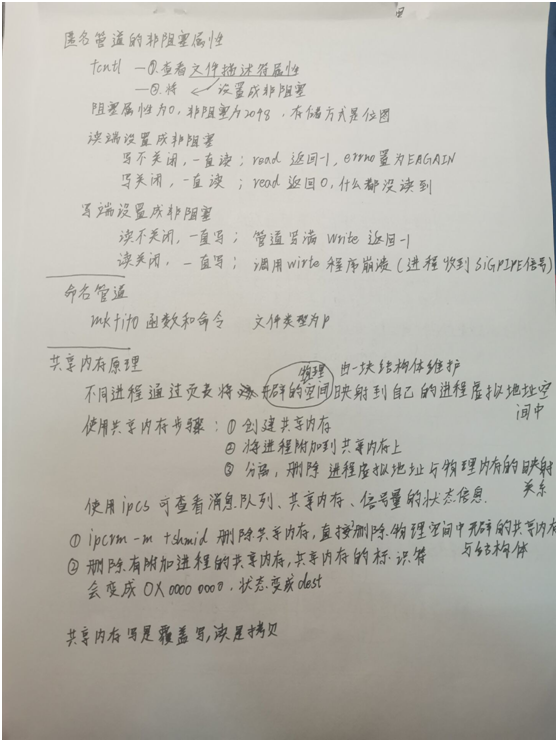 匿名管道的非阻塞属性
fcntl —①.查看文件描述符属性
—②.将 设置成非阻塞
阻塞属性为0,非阻塞为2048,存储方式是位图
读端设置成非阻塞
写不关闭,一直读; read 返回-1, errno置为EAGAIN
写关闭,一直读; read返回0,什么都没读到
写端设置成非阻塞
读不关闭,一直写; 管道写满 write 返回-1
读关闭,一直写; 调用wirte 程序崩溃(进程收到SIGPIPE信号)
命名管道
mkfifo 函数和命令 文件类型为p
共享内存原理
物理 由一块结构体维护
不同进程通过页表将 开辟的空间映射到自己的进程虚拟地址空
间中
使用共享内存步骤: ① 创建共享内存
② 将进程附加到共享内存上
③ 分离,删除 进程虚拟地址与物理内存的映射
关系
使用ipcs 可查看消息队列、共享内存、信号量的状态信息.
① ipcrm -m +shmid 删除共享内存,直接删除物理空间中开辟的共享内存
与结构体
② 删除有附加进程的共享内存,共享内存的标识符
会变成 0X 0000 0000.状态变成dest
共享内存写是覆盖写,读是拷贝